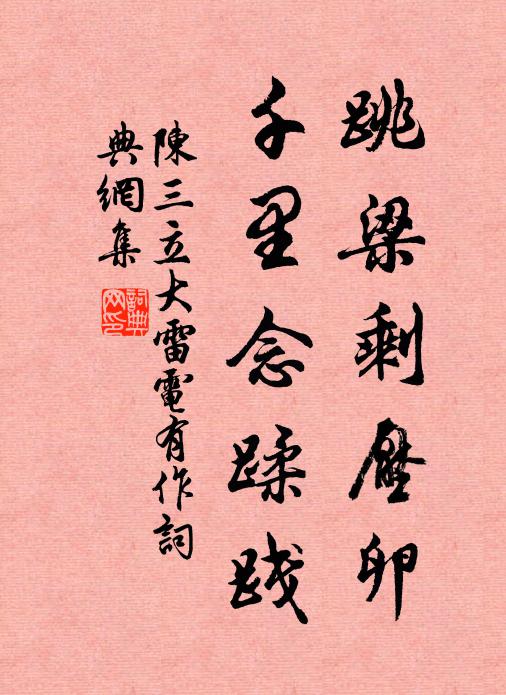 跳梁剩壓卵
千里念蹂踐
陳三立大雷電有作詞
典網集
詞典网印